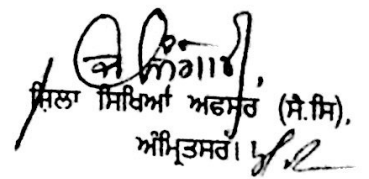 ਜ਼ਿਲਾ ਸਿਖਿਆਂ ਅਫਸਰ (ਸੈ.ਸਿ),
ਅੰਮ੍ਰਿਤਸਰ।